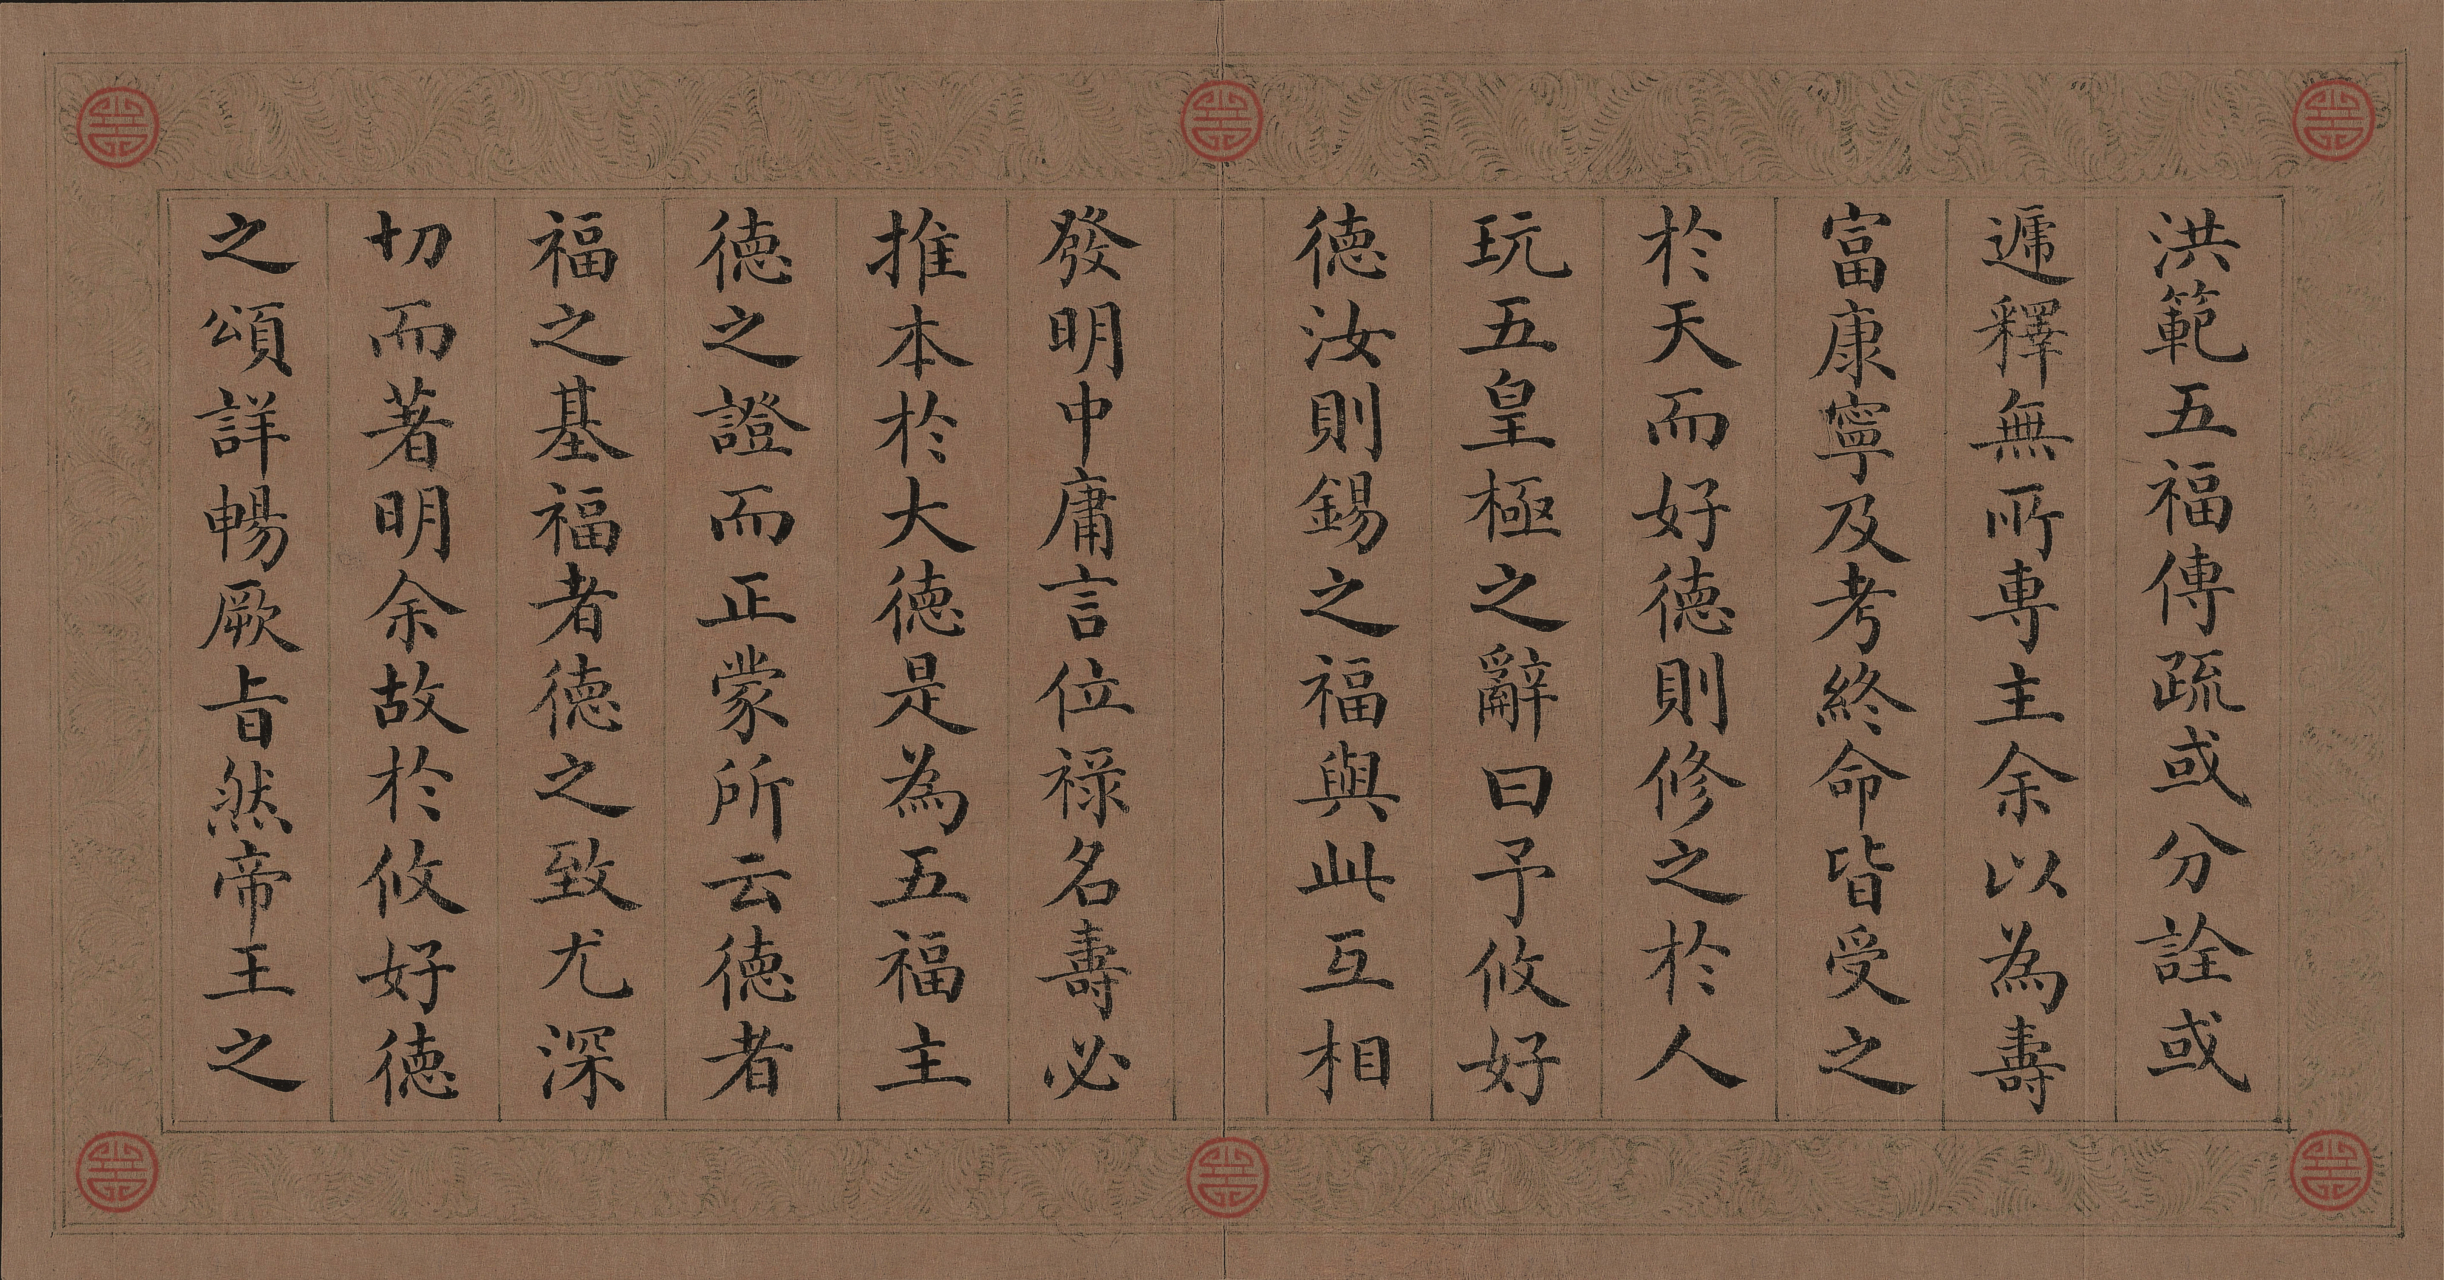 洪範五福傳疏或分詮或
遞釋無所專主余以為壽
富康寧及考終命皆受之
於天而好德則修之於人
玩五皇極之辭曰予攸好
德汝則錫之福與此互相
發明中庸言位祿名壽必
推本於大德是為五福主
德之證而正蒙所云德者
福之基福者德之致尤深
切而著明余故於攸好德
之頌詳暢厥旨然帝王之